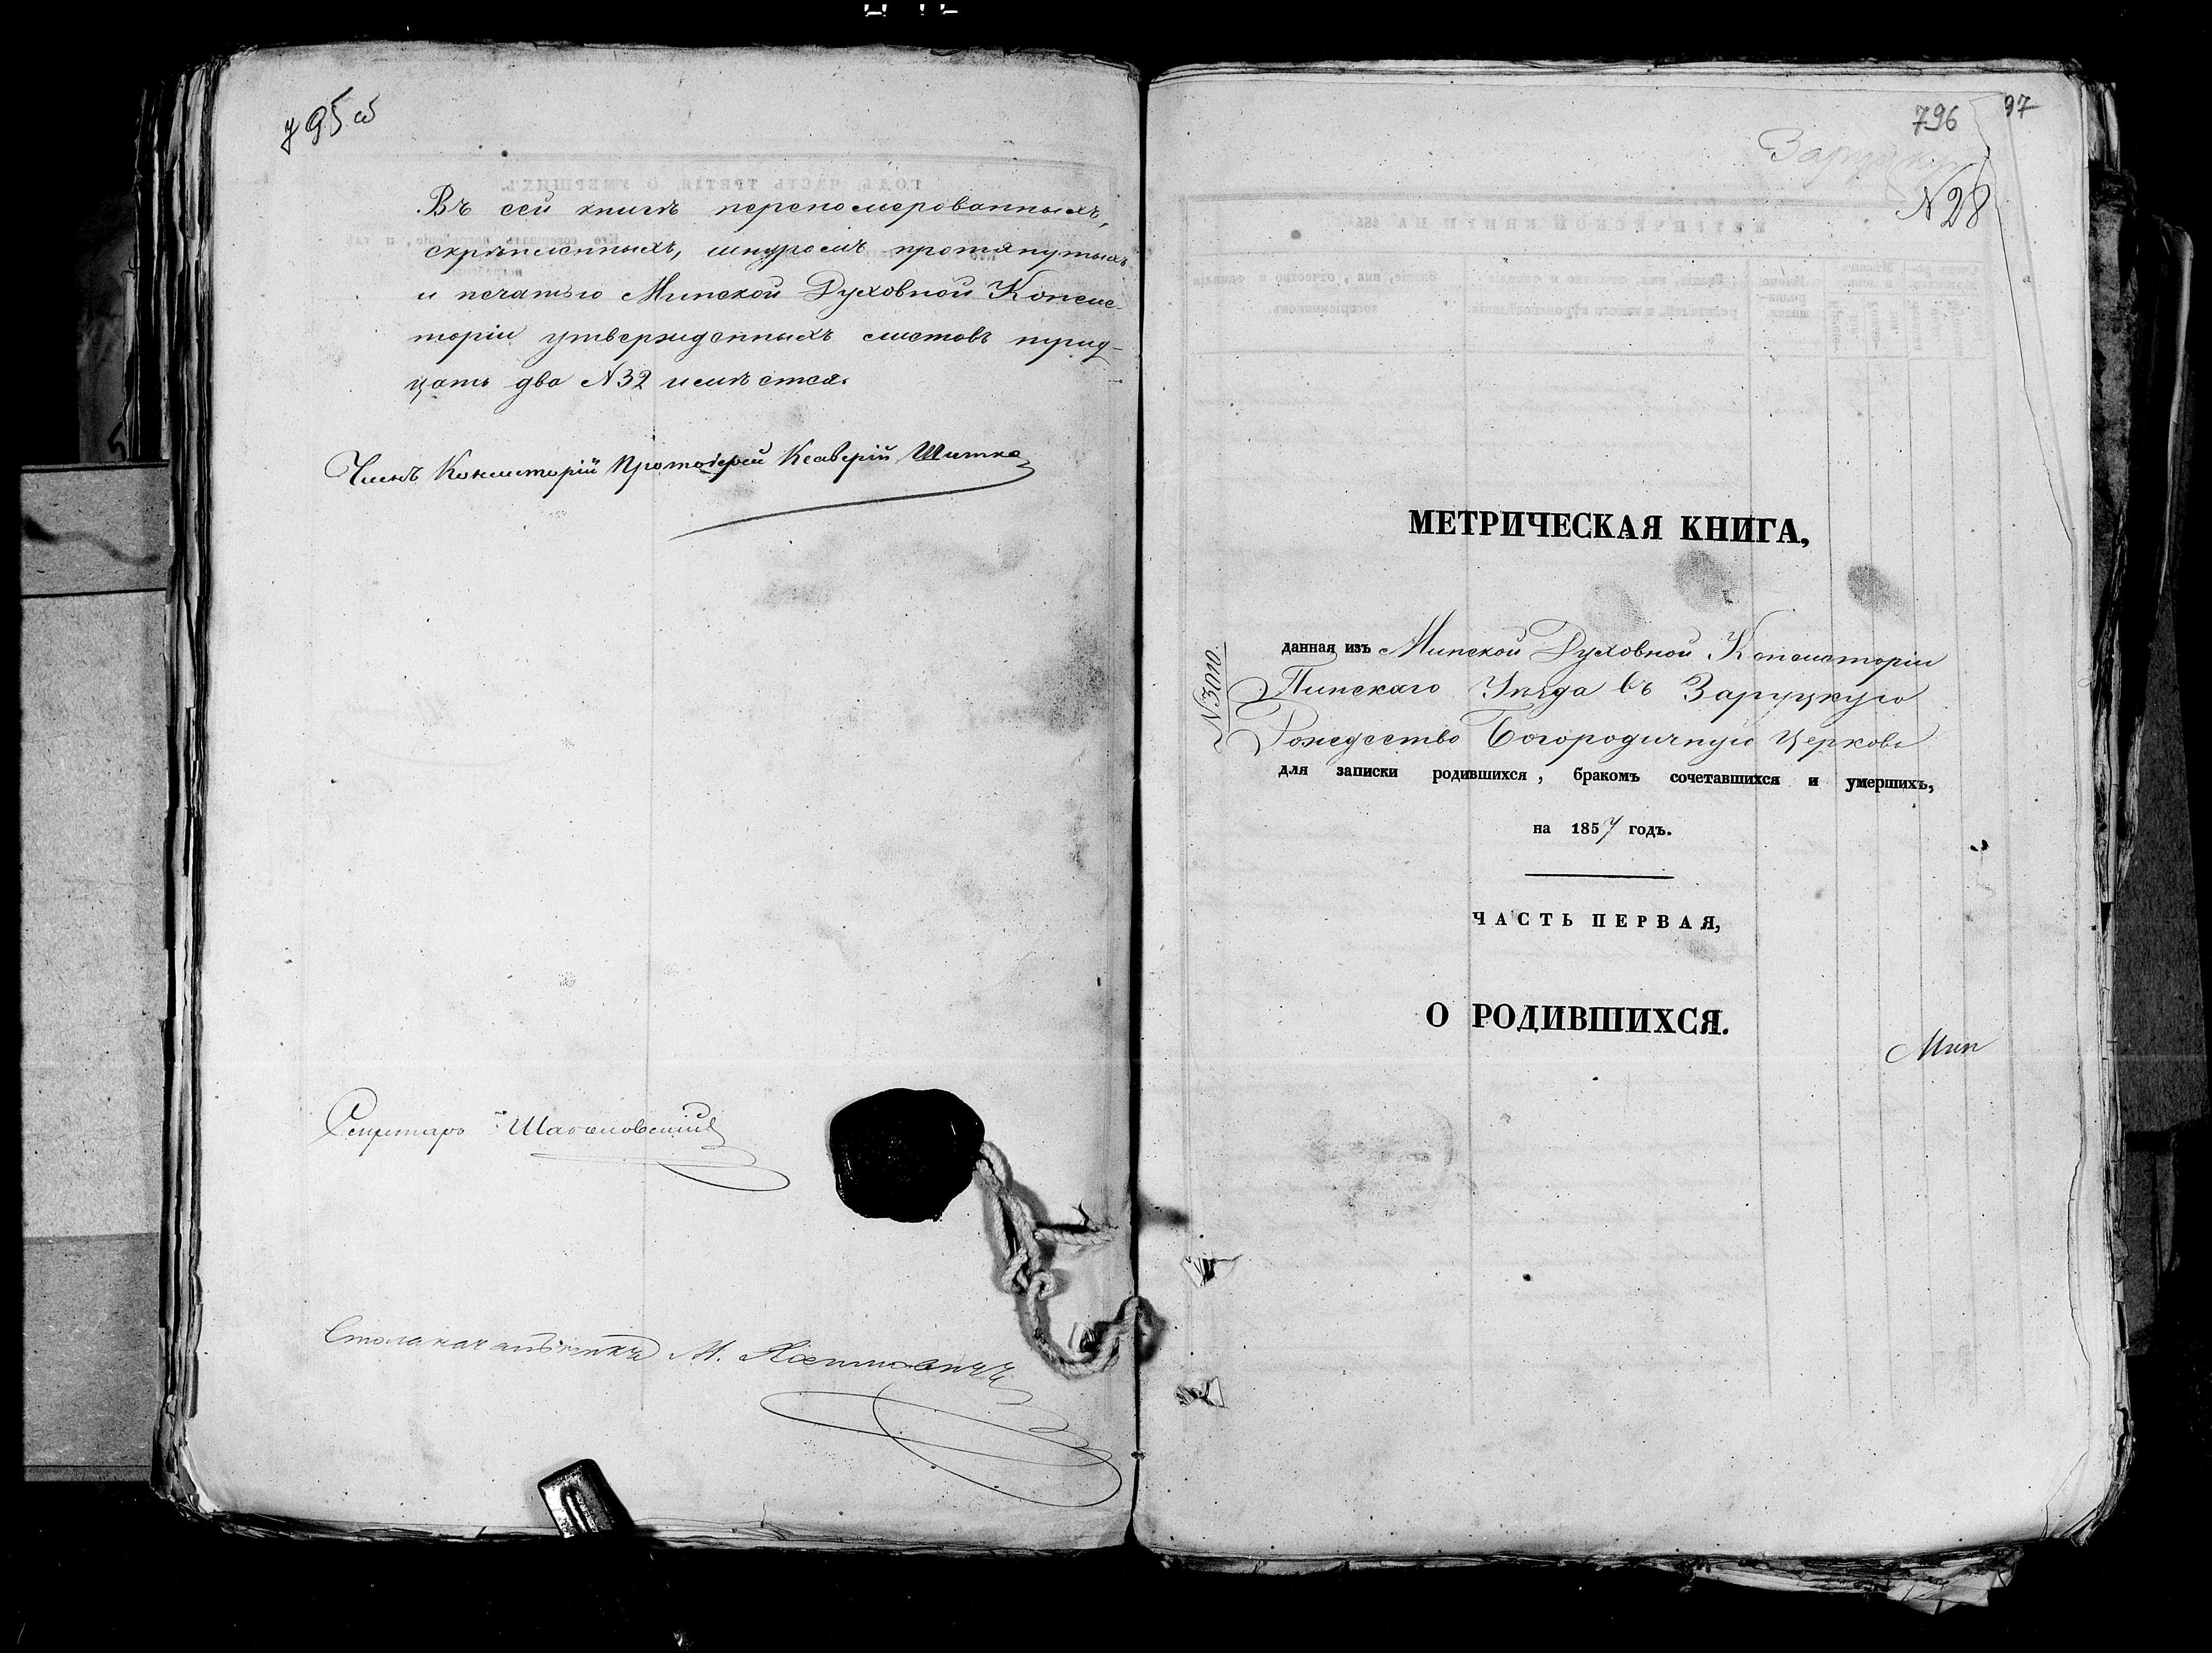 795 об
Въ сей книгѣ перепомерованныхъ,
скрѣпленныхъ, шнуромъ протянутыхъ
и печатью Минской Духовной Консис-
торіи утвержденныхъ листовъ трид-
цать два №32 имѣется.
Членъ Консисторіи Протоіерей Ксаверій Шитко
Секретарь
Столоначальникъ М.
796
97
Заруцкую
№28
МЕТРИЧЕСКАЯ КНИГА,
№3010.
данная изъ Минской Духовной Консисторіи
Пинскаго Уѣзда въ Заруцкую
Рождество Богородичную Церковь
для записки родившихся, бракомъ сочетавшихся и умершихъ,
на 1857 годъ.
ЧАСТЬ ПЕРВАЯ,
О РОДИВШИХСЯ.
Мин